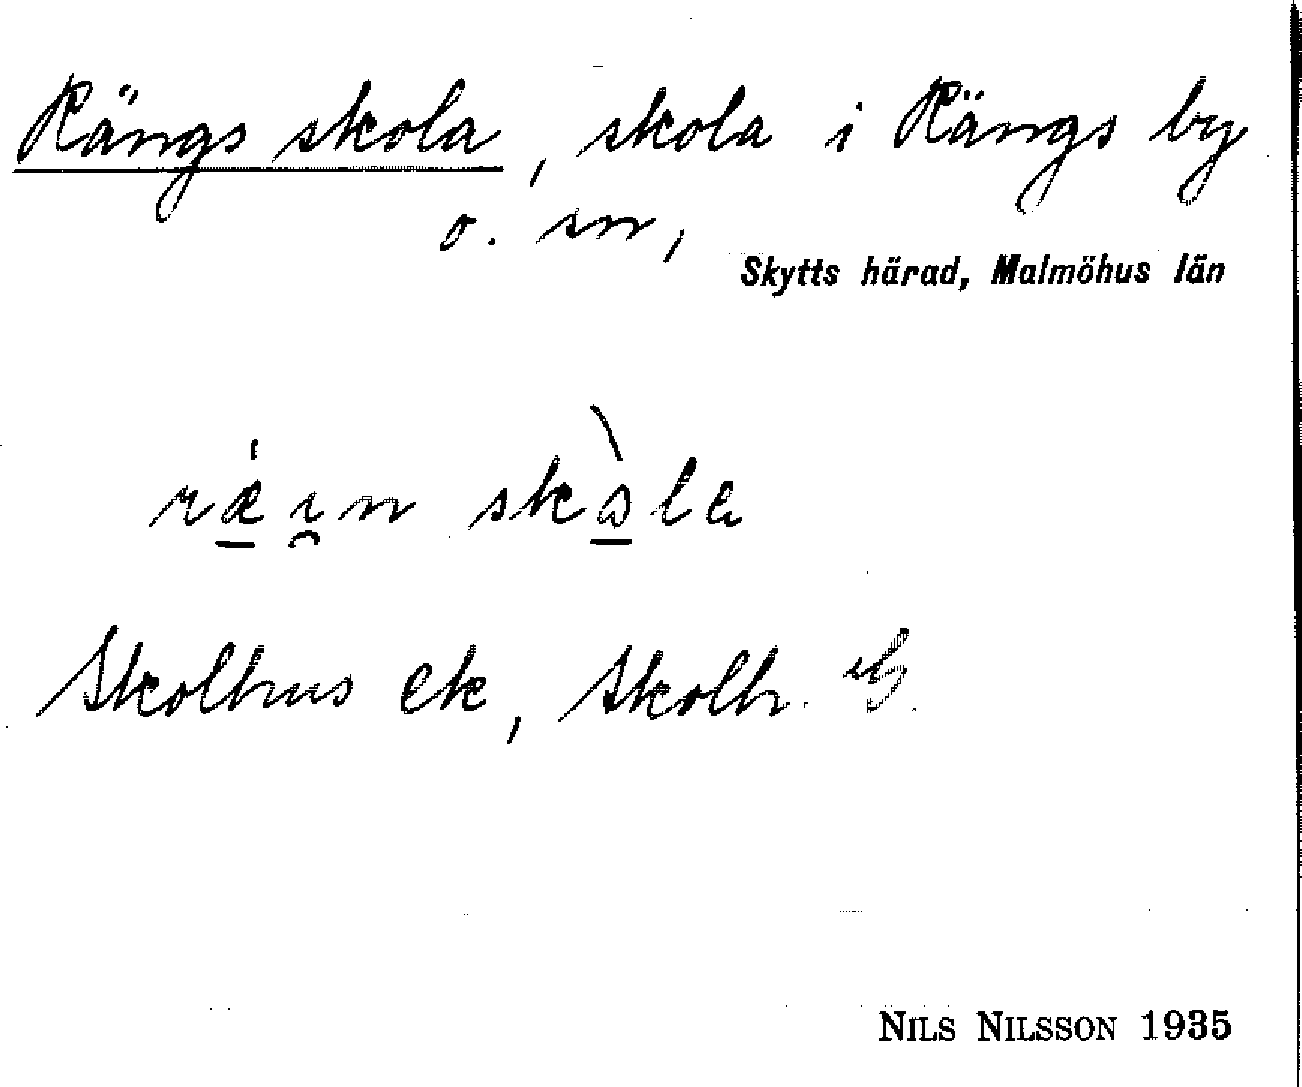 Rängs skola, skola i Rängs by
o. sn,
Skytts härad, Malmöhus län
Skolhus ek, Skolh.
NILS NILSSON 1935